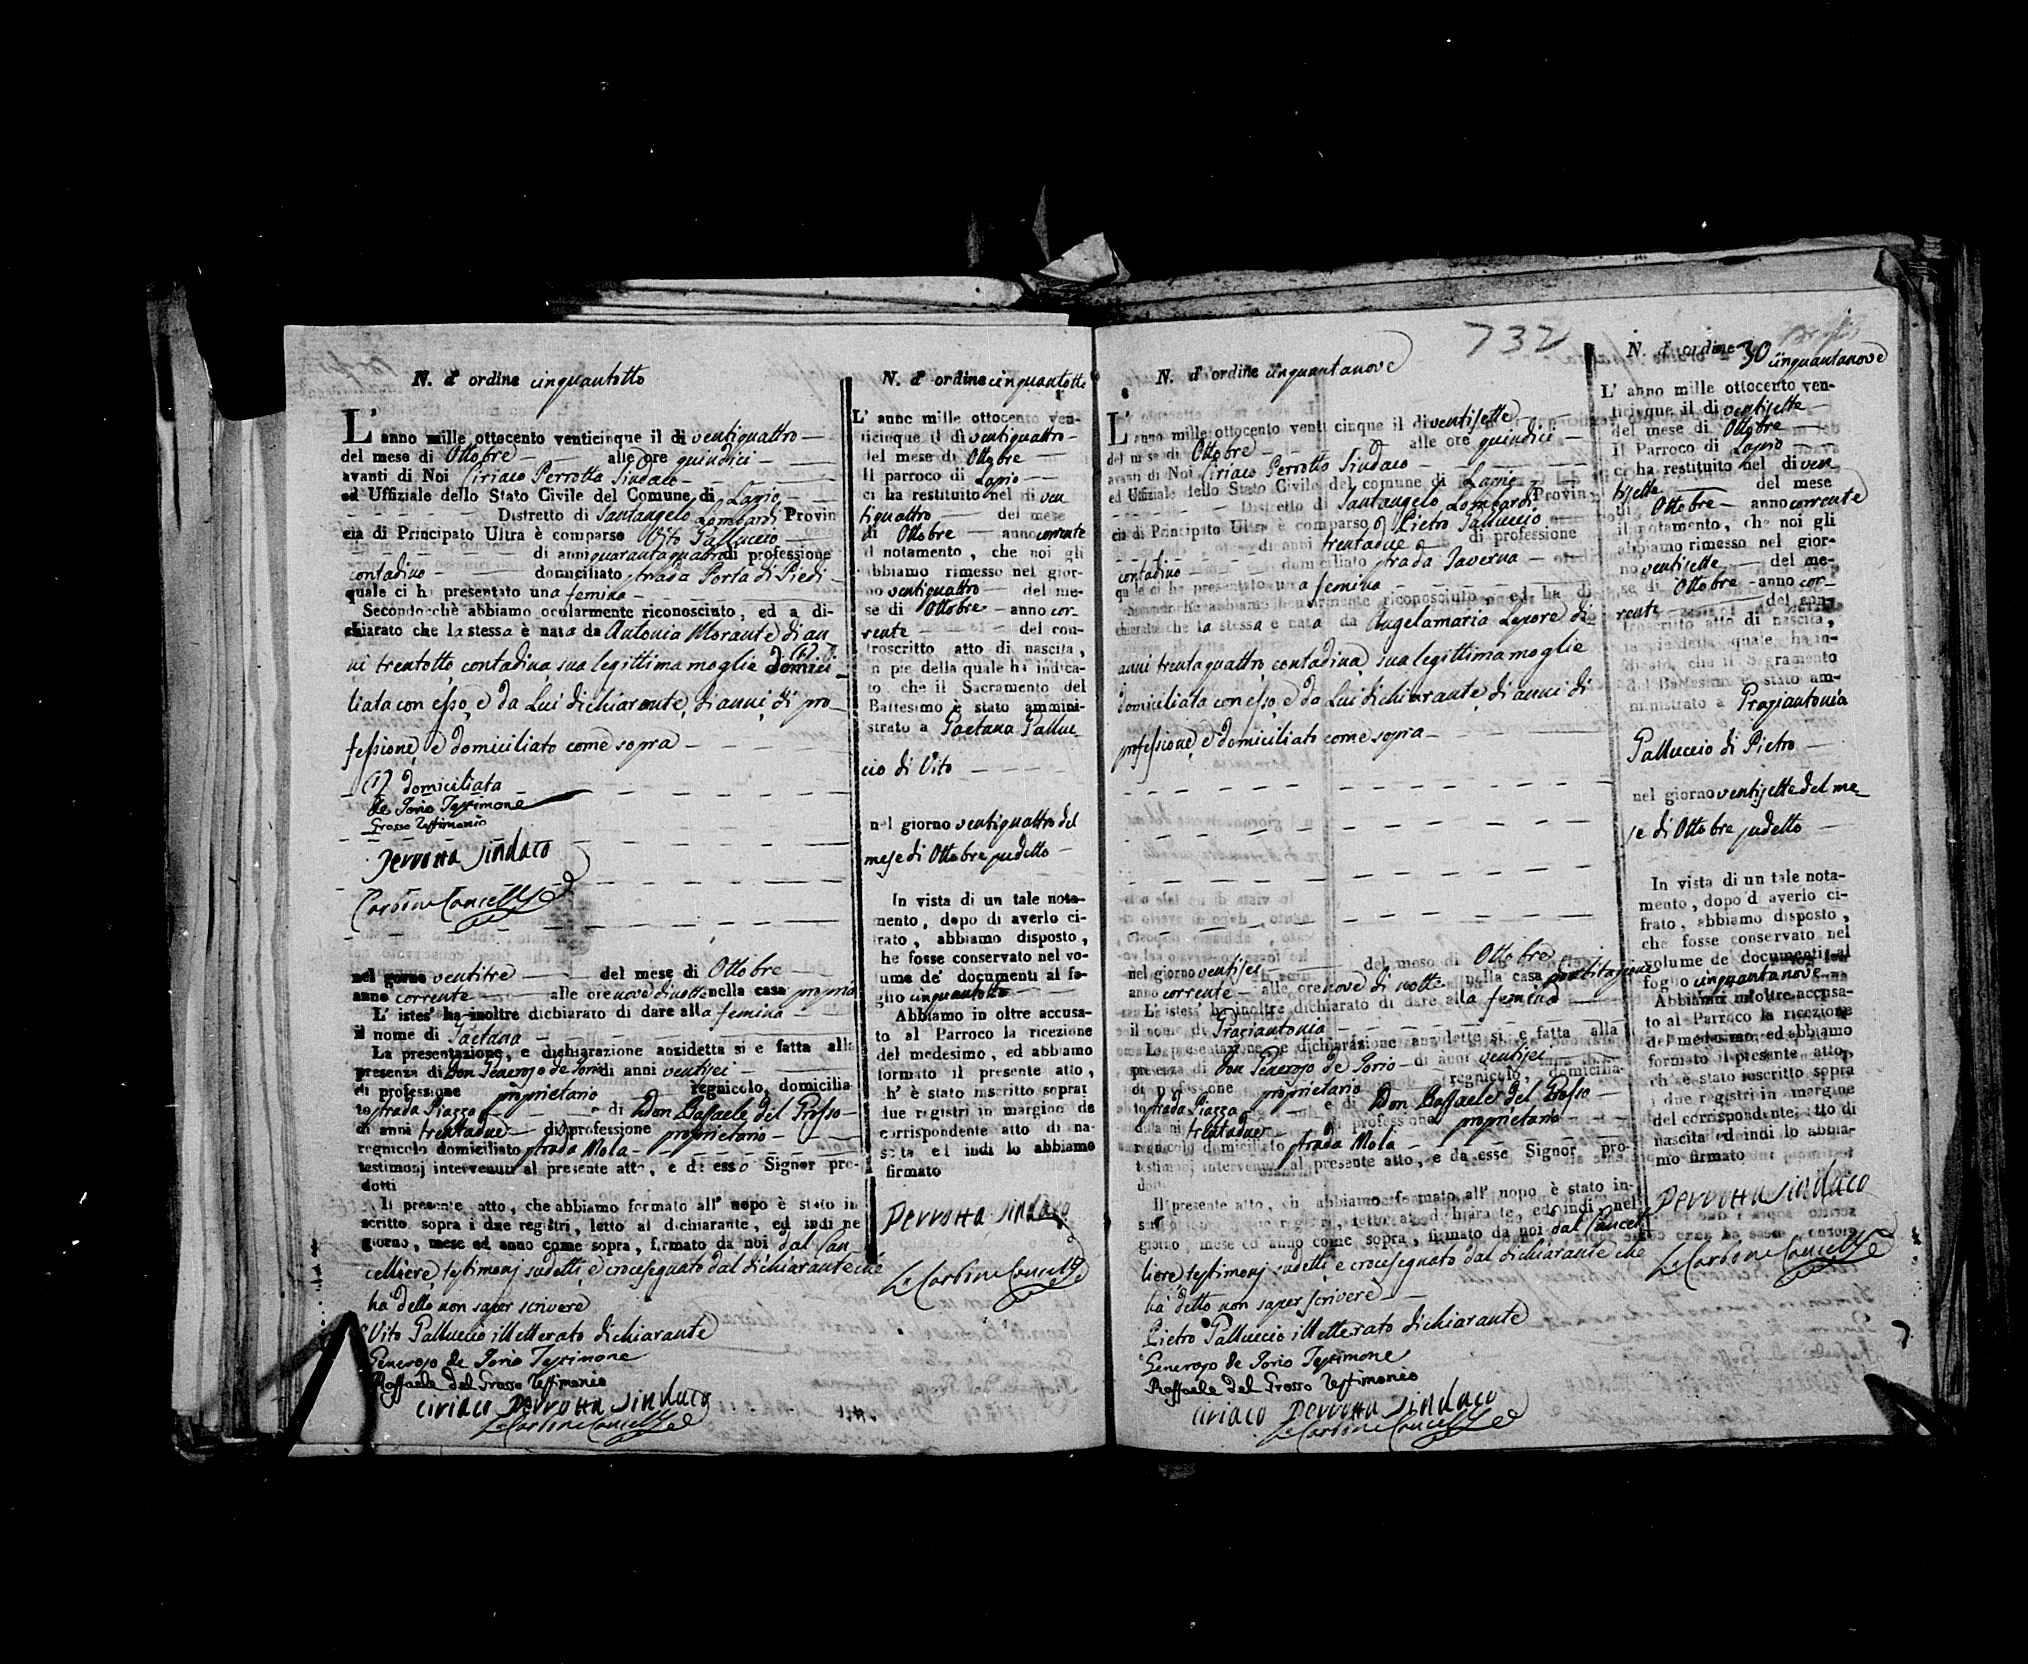 N. d' ordine cinquantotto
L' anno mille ottocento venticinque il dì ventiquattro
del mese di Ottobre alle ore quindici
avanti di Noi Ciriaco Perrotta Sindaco
ed Uffiziale dello Stato Civile del Comune di Lapio
Distretto di Santangelo Lombardi Provin
cia di Principato Ultra è comparso Vito Galluccio
di anni quarantaquattro di professione
contadino domiciliato strada Porta di Piedi
quale ci ha presentato una femina
Secondocchè abbiamo ocularmente riconosciuto, ed a di-
chiarato che la stessa è nata da Antonia Morante di an
ni trentotto, contadina, sua legittima moglie domici
liata con esso, e da Lui dichiarante, di anni, di pro
fessione, e domiciliato come sopra
(1) domiciliata
de Iorio Testimone
Grosso Testimonio
Perrotta Sindaco
Carbone Cancelliere
nel gorno ventitre del mese di Ottobre
anno corrente alle ore nove di notte nella casa propria
L' istes' ha inoltre dichiarato di dare alla femina
il nome di Gaetana
La presentazione, e dichiarazione anzidetta si e fatta alla
presenza di Don Generoso de Iorio di anni ventisei
di professione proprietario regnicolo, domicilia
to strada Piazza e di Don Raffaele del Grosso
di anni trentadue di professione proprietario
regnicolo domiciliato strada Mola
testimonj intervenuti al presente atto, e di esso Signor pro-
dotti
Il presente atto, che abbiamo formato all' uopo è stato in
scritto sopra i due registri, letto al dichiarante, ed indi ne
giorno, mese ed anno come sopra, firmato da noi dal Can
celliere, testimonj sudetti, e crocesegnato dal dichiarante che
ha detto non saper scrivere
Vito Galluccio illetterato dichiarante
Generoso de Iorio Testimone
Raffaele del Grosso Testimonio
Ciriaco Perrotta Sindaco
Lo Carbone Cancelliere
N. d' ordine cinquantotto
L' anno mille ottocento ven-
ticinque il dì ventiquattro
del mese di Ottobre
Il parroco di Lapio
ci ha restituito nel dì ven
tiquattro del mese
di Ottobre anno corrente
il notamento, che noi gli
abbiamo rimesso nel gior-
no ventiquattro del me-
se di Ottobre anno cor-
rente del con-
troscritto atto di nascita,
in pie della quale ha indica-
to che il Sacramento del
Battesimo è stato ammini-
strato a Gaetana Galluc
cio di Vito
nel giorno ventiquattro del
mese di Ottobre sudetto
In vista di un tale nota-
mento, dopo di averlo ci-
frato, abbiamo disposto,
he fosse conservato nel vo-
lume de' documenti al fo-
glio cinquantotto
Abbiamo in oltre accusa-
to al Parroco la ricezione
del medesimo, ed abbiamo
formato il presente atto,
h' è stato inscritto sopra i
due registri in margine de
corrispondente atto di na-
scita ed indi lo abbiamo
firmato
Perrotta Sindaco
Lo Carbone Cancelliere
732
N. d' ordine cinquantanove
L' anno mille ottocento venti cinque il dì ventisette
del mese di Ottobre alle ore quindici
avanti di Noi Ciriaco Perrotta Sindaco
ed Uffiziale dello Stato Civile del comune di Lapio
Distretto di Santangelo Lombardi Provin
cia di Principato Ultra è comparso Pietro Galluccio
di anni trentadue di professione
contadino domiciliato strada Taverna
quale ci ha presentato una femina
Secondocchè abbiamo ocularmente riconosciuto, ed ha di
chiarato che la stessa e nata da Angelamaria Lepore di
anni trentaquattro, contadina, sua legittima moglie
domiciliata con esso, e da Lui dichiarante, di anni di
professione, e domiciliato come sopra
nel giorno ventisei del mese di Ottobre
anno corrente alle ore nove di notte nella casa
L' istess' ha inoltre dichiarato di dare alla femina
il nome di Graziantonia
La presentazione, e dichiarazione anzidetta si e fatta alla
presenza di Don Generoso de Iorio di anni ventisei
di professione proprietario regnicolo, domicilia-
to strada Piazza e di Don Raffaele del Grosso
di anni trentadue di professione proprietario
regnicolo domiciliato strada Mola
testimonj intervenuti al presente atto, e da esse Signor pro-
dotti
Il presente atto, che abbiamo formato all' uopo è stato in-
scritto sopra i due registri, letto al dichiarante, ed indi nel
giorno, mese ed anno come sopra, firmato da noi dal Cancel
liere, testimonj sudetti, e crocesegnato dal dichiarante che
ha detto non saper scrivere
Pietro Galluccio illetterato dichiarante
Generoso de Iorio Testimone
Raffaele del Grosso Testimonio
Ciriaco Perrotta Sindaco
Lo Carbone Cancelliere
N. d' ordine 30 cinquantanove
L' anno mille ottocento ven-
ticinque il di ventisette
del mese di Ottobre
Il Parroco di Lapio
ci ha restituito nel di ven
tisette del mese
di Ottobre anno corrente
il notamento, che noi gli
abbiamo rimesso nel gior-
no ventisette del me-
se di Ottobre anno cor-
rente del con-
troscritto atto di nascita,
in pie della quale ha in-
dicato, che il Sagramento
del Battesimo è stato am-
ministrato a Graziantonia
Galluccio di Pietro
nel giorno ventisette del me
se di Ottobre sudetto
In vista di un tale nota-
mento, dopo di averlo ci-
frato, abbiamo disposto,
che fosse conservato nel
volume de' documenti al
foglio cinquantanove
Abbiamo inoltre accusa-
to al Parroco la ricezione
del medesimo, ed abbiamo
formato il presente atto,
ch' è stato inscritto sopra
i due registri in margine
del corrispondente atto di
nascita ed indi lo abbia-
mo firmato
Perrotta Sindaco
Lo Carbone Cancelliere